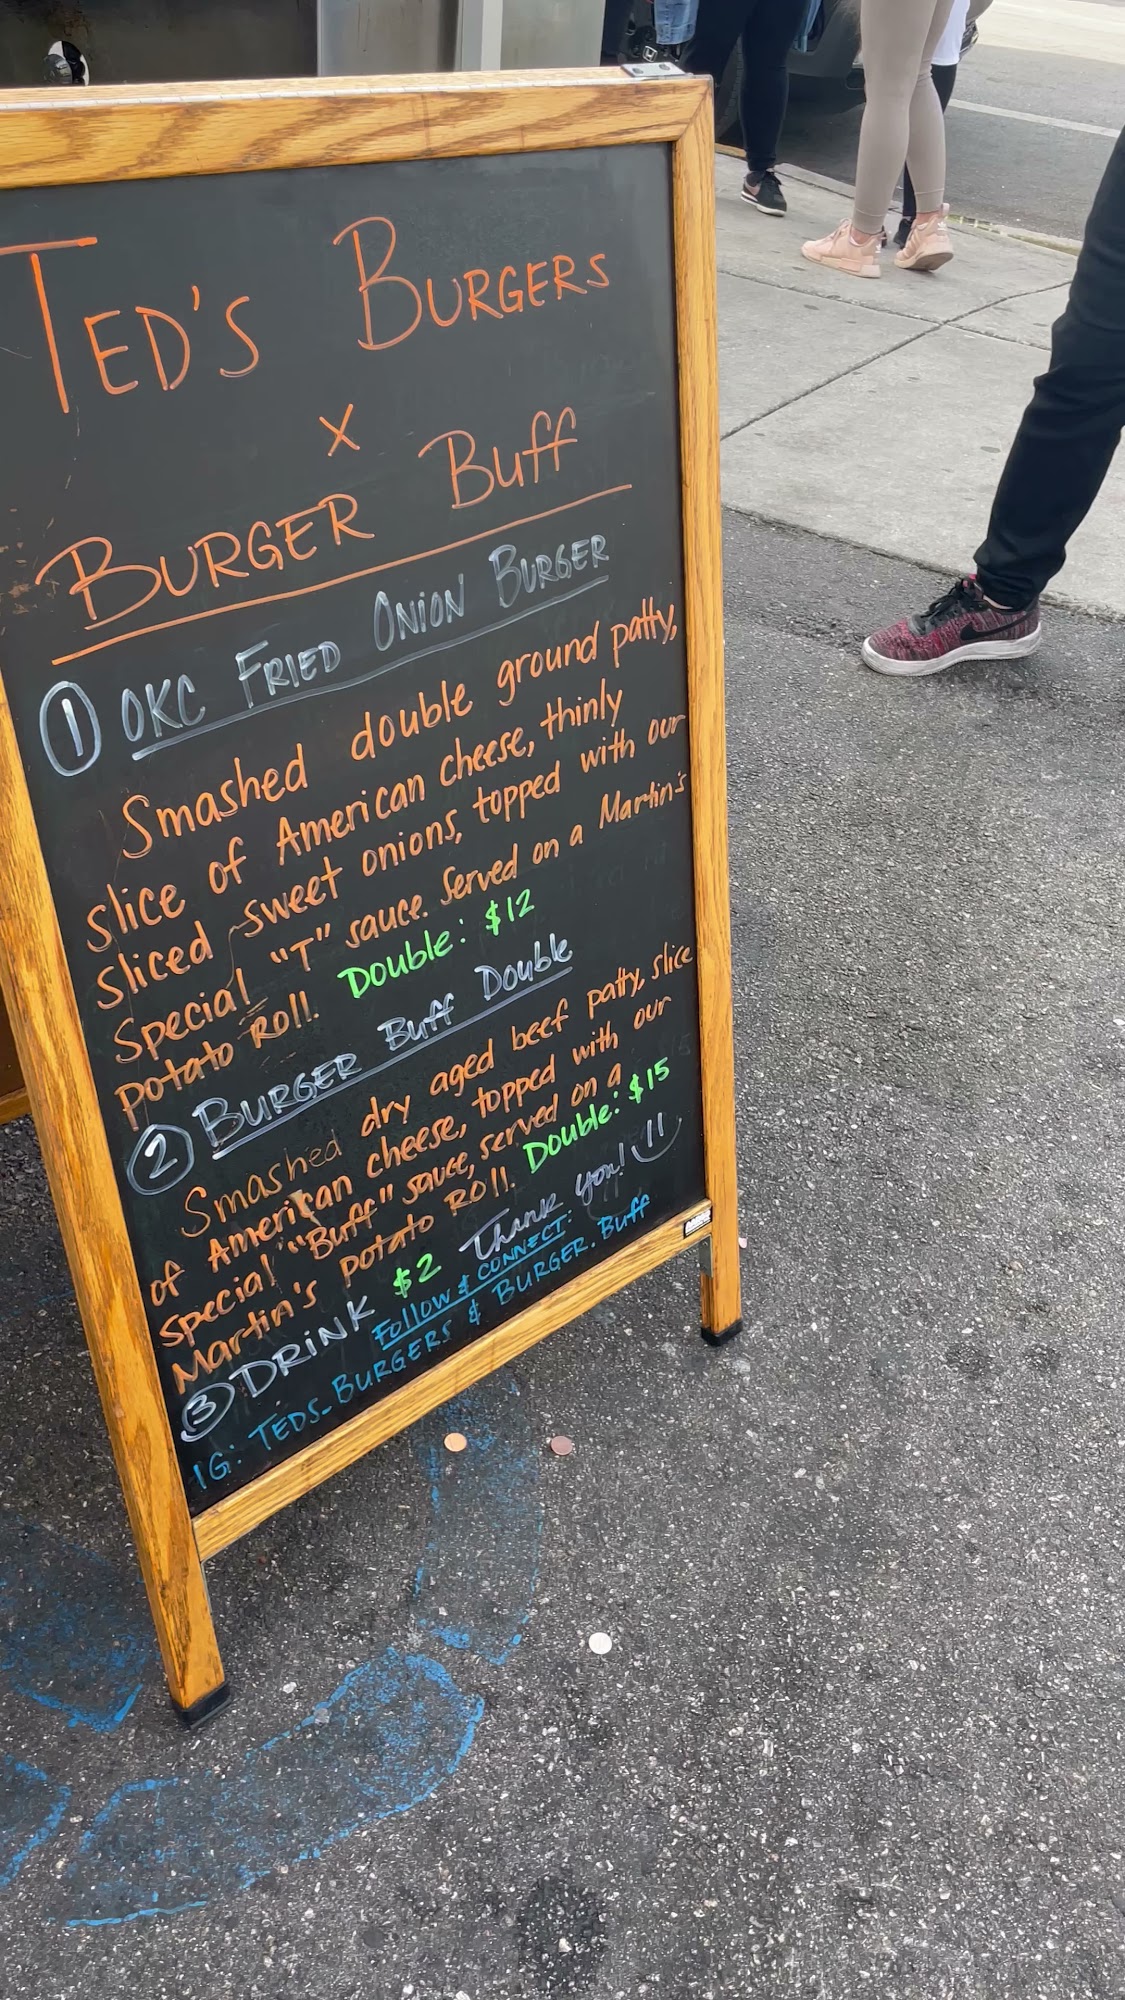 TED'S BURGERS
X
BURGER Buff
1 OKC FRIED ONION BURGER
Smashed double ground patty,
slice of American cheese, thinly
sliced sweet onions, topped with our
special "T" sauce. Served on a Martin's
potato Roll. DOUBLE: $12
2 BURGER Buff Double
Smashed dry aged beef patty, slice
of American cheese, topped with our
special "Buff" sauce, served on a
Martin's potato Roll. Double: $15
3 DRINK $2 Thank you!
Follow & CONNECT:
IG: TEDS_BURGERS & BURGER.Buff